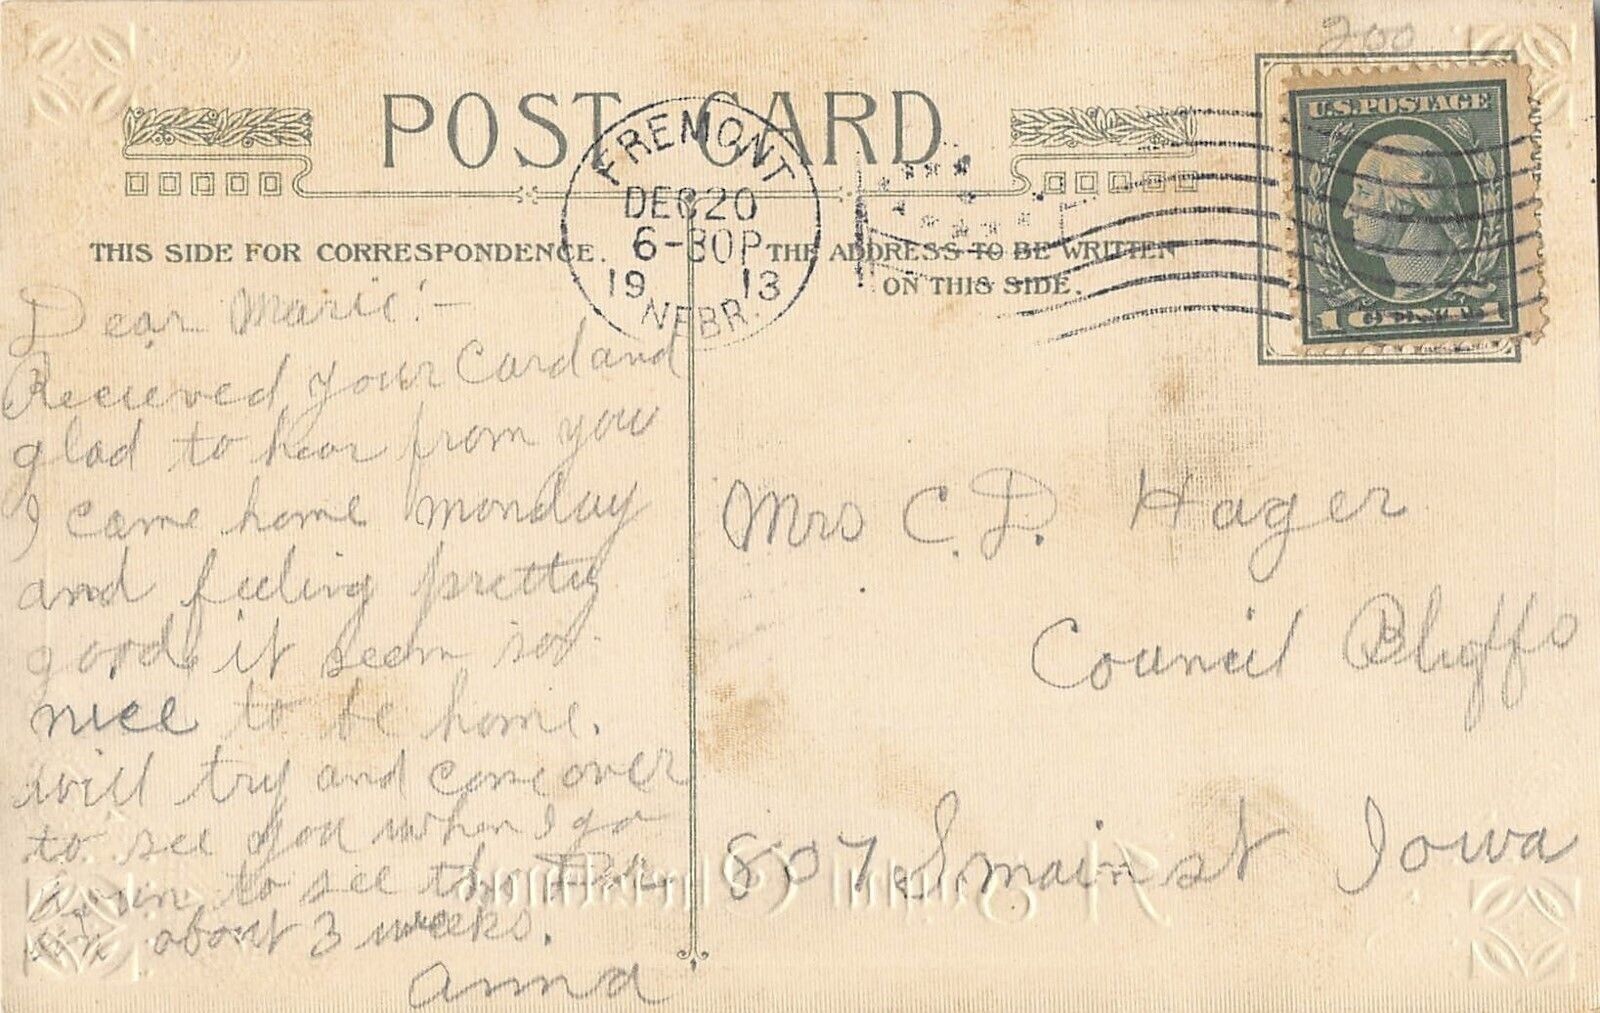 200
POST CARD
U.S. POSTAGE
FREMONT
DEC 20
6-30P
19 13
NEBR.
THIS SIDE FOR CORRESPONDENCE.
THE ADDRESS TO BE WRITTEN
ON THIS SIDE.
Dear Marie:-
Recieved your Card and
glad to hear from you
I came home monday
and feeling pretty
good. it seem so
nice to be home.
will try and come over
to see you when I go
down to see the Dr.
in about 3 weeks.
Anna
Mrs C. D. Hager
Council Bluffs
807 S. main st Iowa